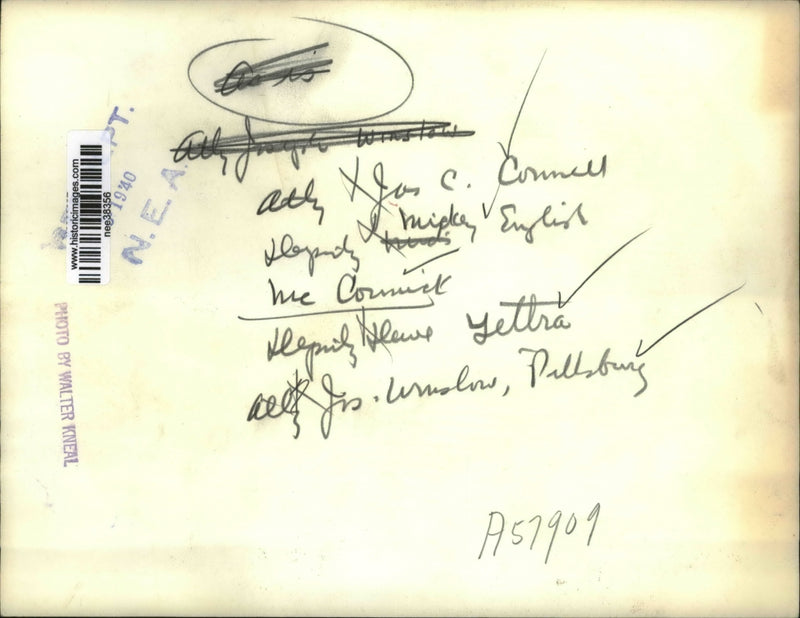 As is
Atty Joseph Winslow
Atty Jas C. Connell
Deputy Mickey English
Mc Cormick
Deputy Steve Yettra
Atty Jos. Winslow, Pittsburg
A57909
www.historicimages.com
nee38356
PT.
19 '40
N. E. A.
PHOTO BY WALTER KNEAL